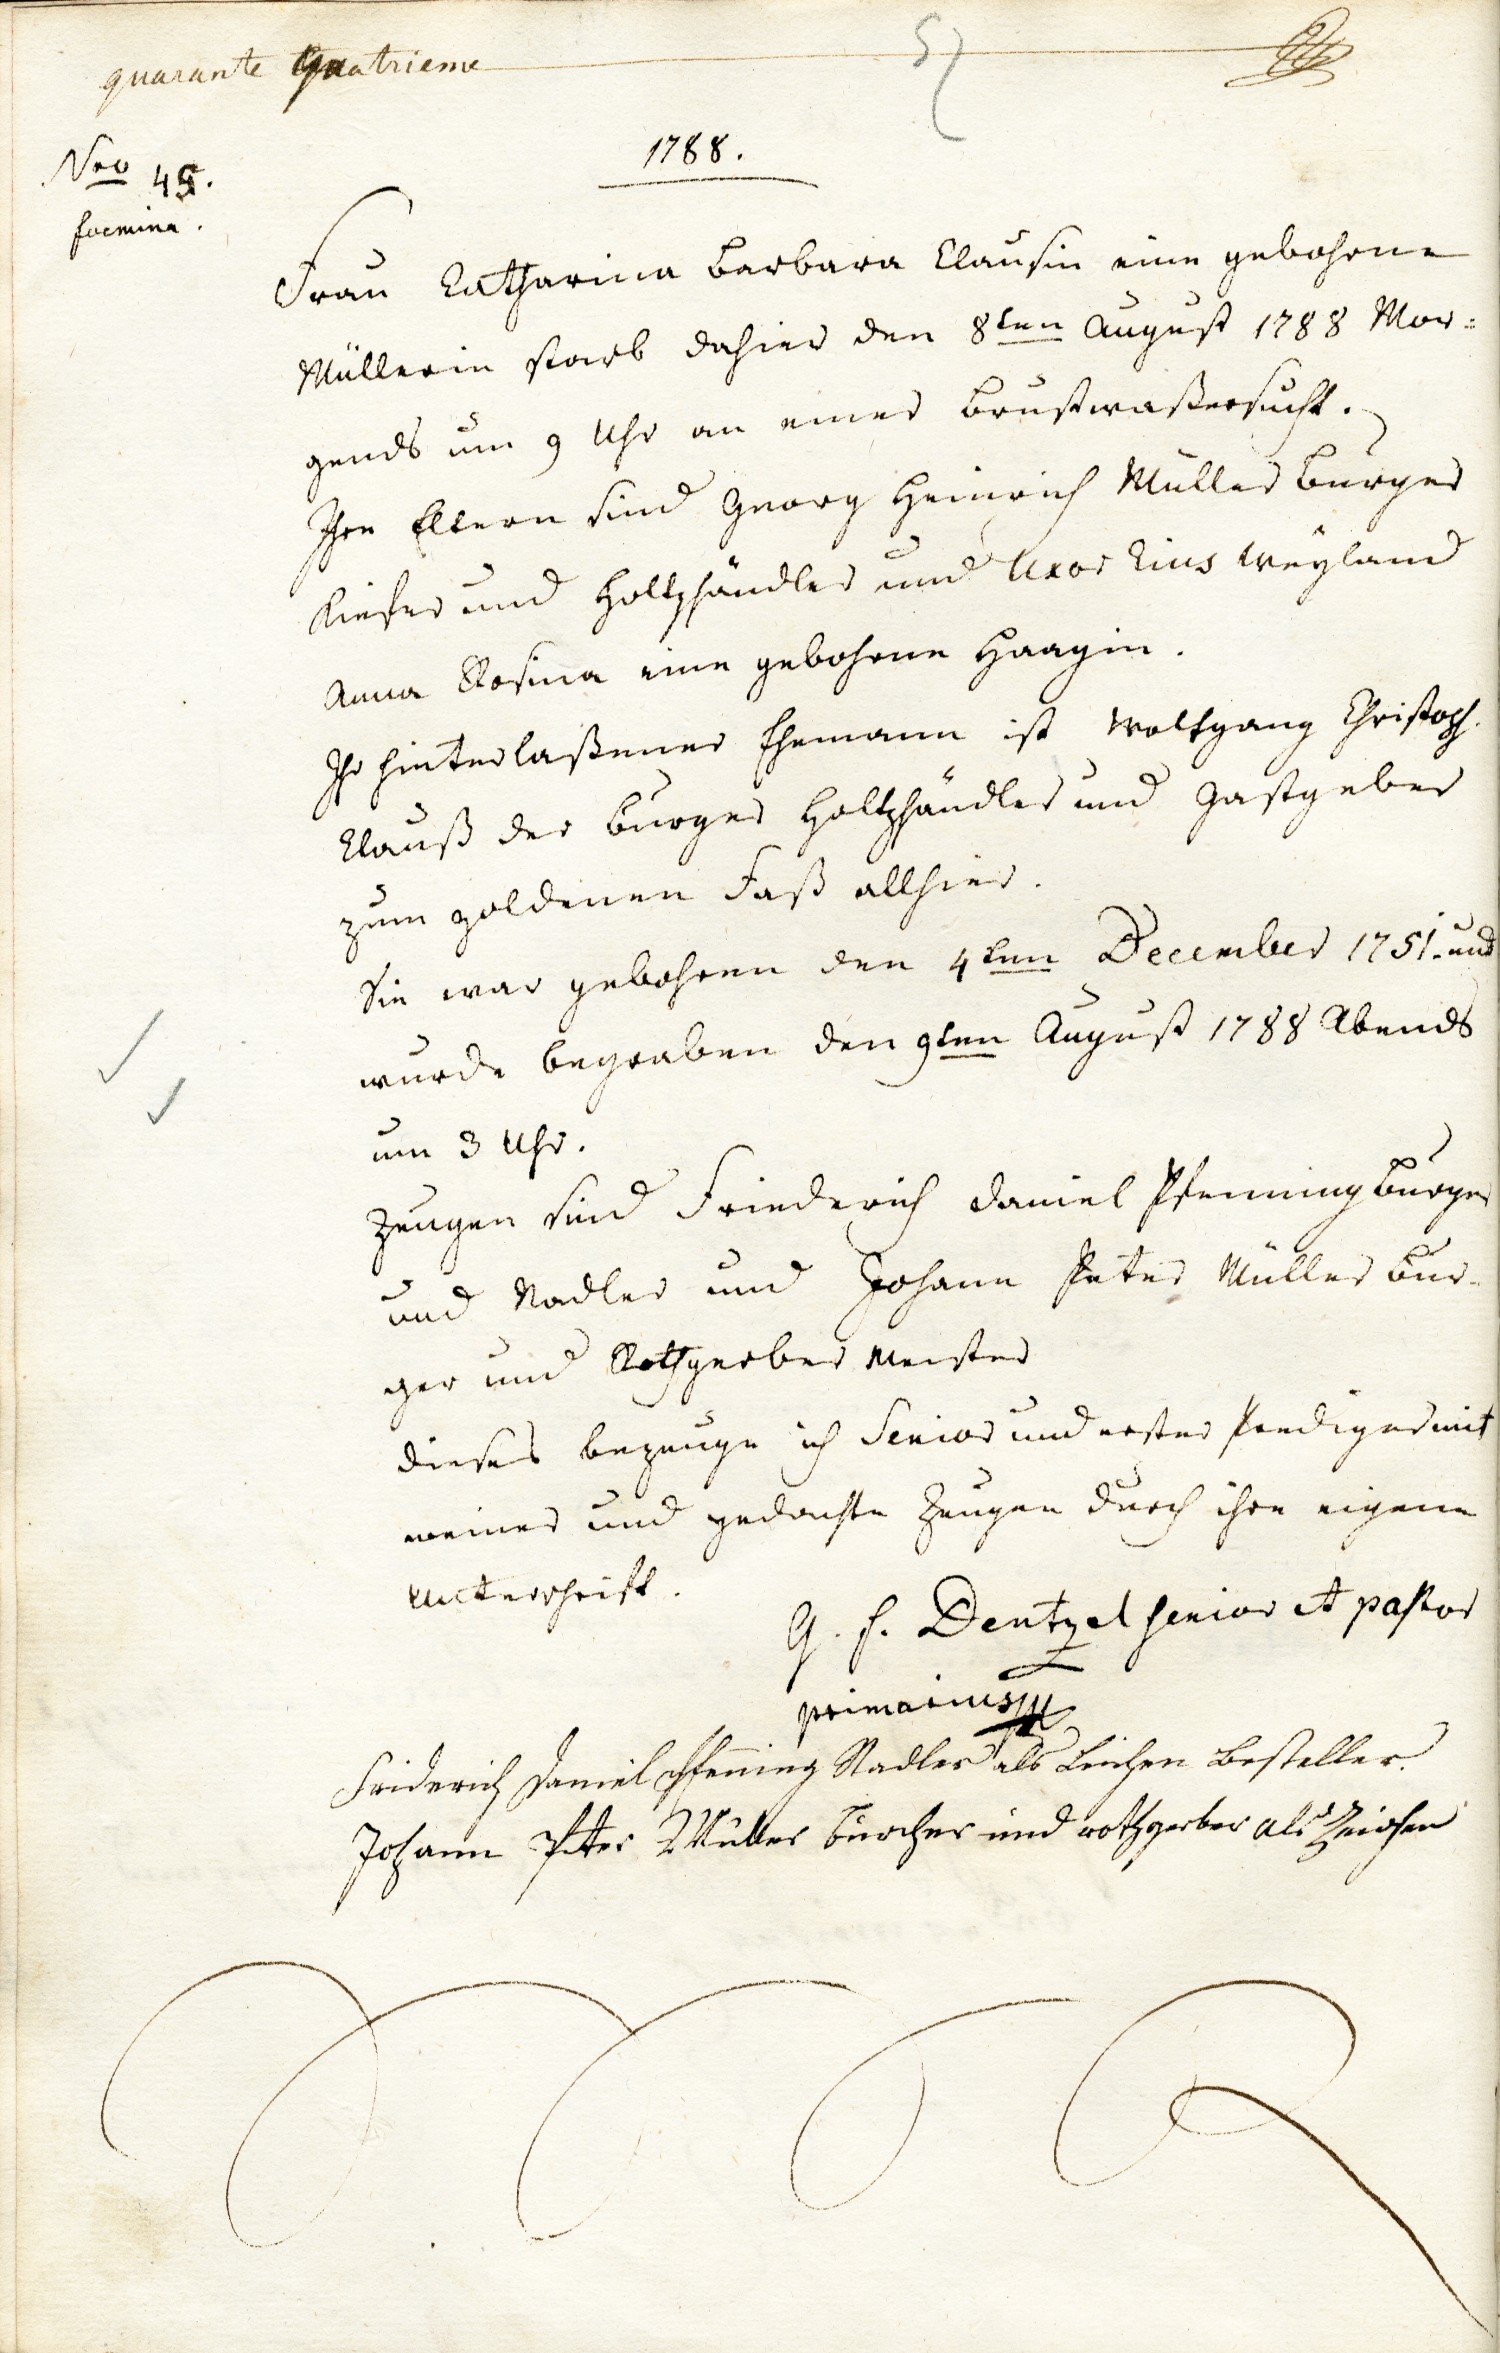 quarante Quatrieme
1788.
Nro 45.
foemina.
Frau Catharina Barbara Clausin eine gebohrne
Müllerin starb dahier den 8ten August 1788 Mor=
gends um 9 Uhr an einer Brustwaßersucht.
Ihre Eltern sind Georg Heinrich Müller Burger
Kiefer und Holtzhändler und Uxor Eius weyland
Anna Rosina eine gebohrne Haagin.
Ihr hinterlaßener Ehemann ist Wolfgang Christoph
Clauß der Burger Holtzhändler und Gastgeber
zum goldenen Faß allhier.
Sie war gebohren den 4ten December 1751. und
wurde begraben den 9ten August 1788 Abends
um 3 Uhr.
Zeugen sind Friederich Daniel Pfenning Burger
und Nadler und Johann Peter Müller Bur-
ger und Rothgerber Meister
dieses bezeuge ich Senior und erster Prediger mit
meiner und gedachte Zeugen durch ihre eigene
Unterschrift.
G. F. Dentzel senior et pastor
primarius
Friderich Daniel Pfening Nadler als Leichen Besteller.
Johann Peter Müller Burcher und rothgerber als Zeichen